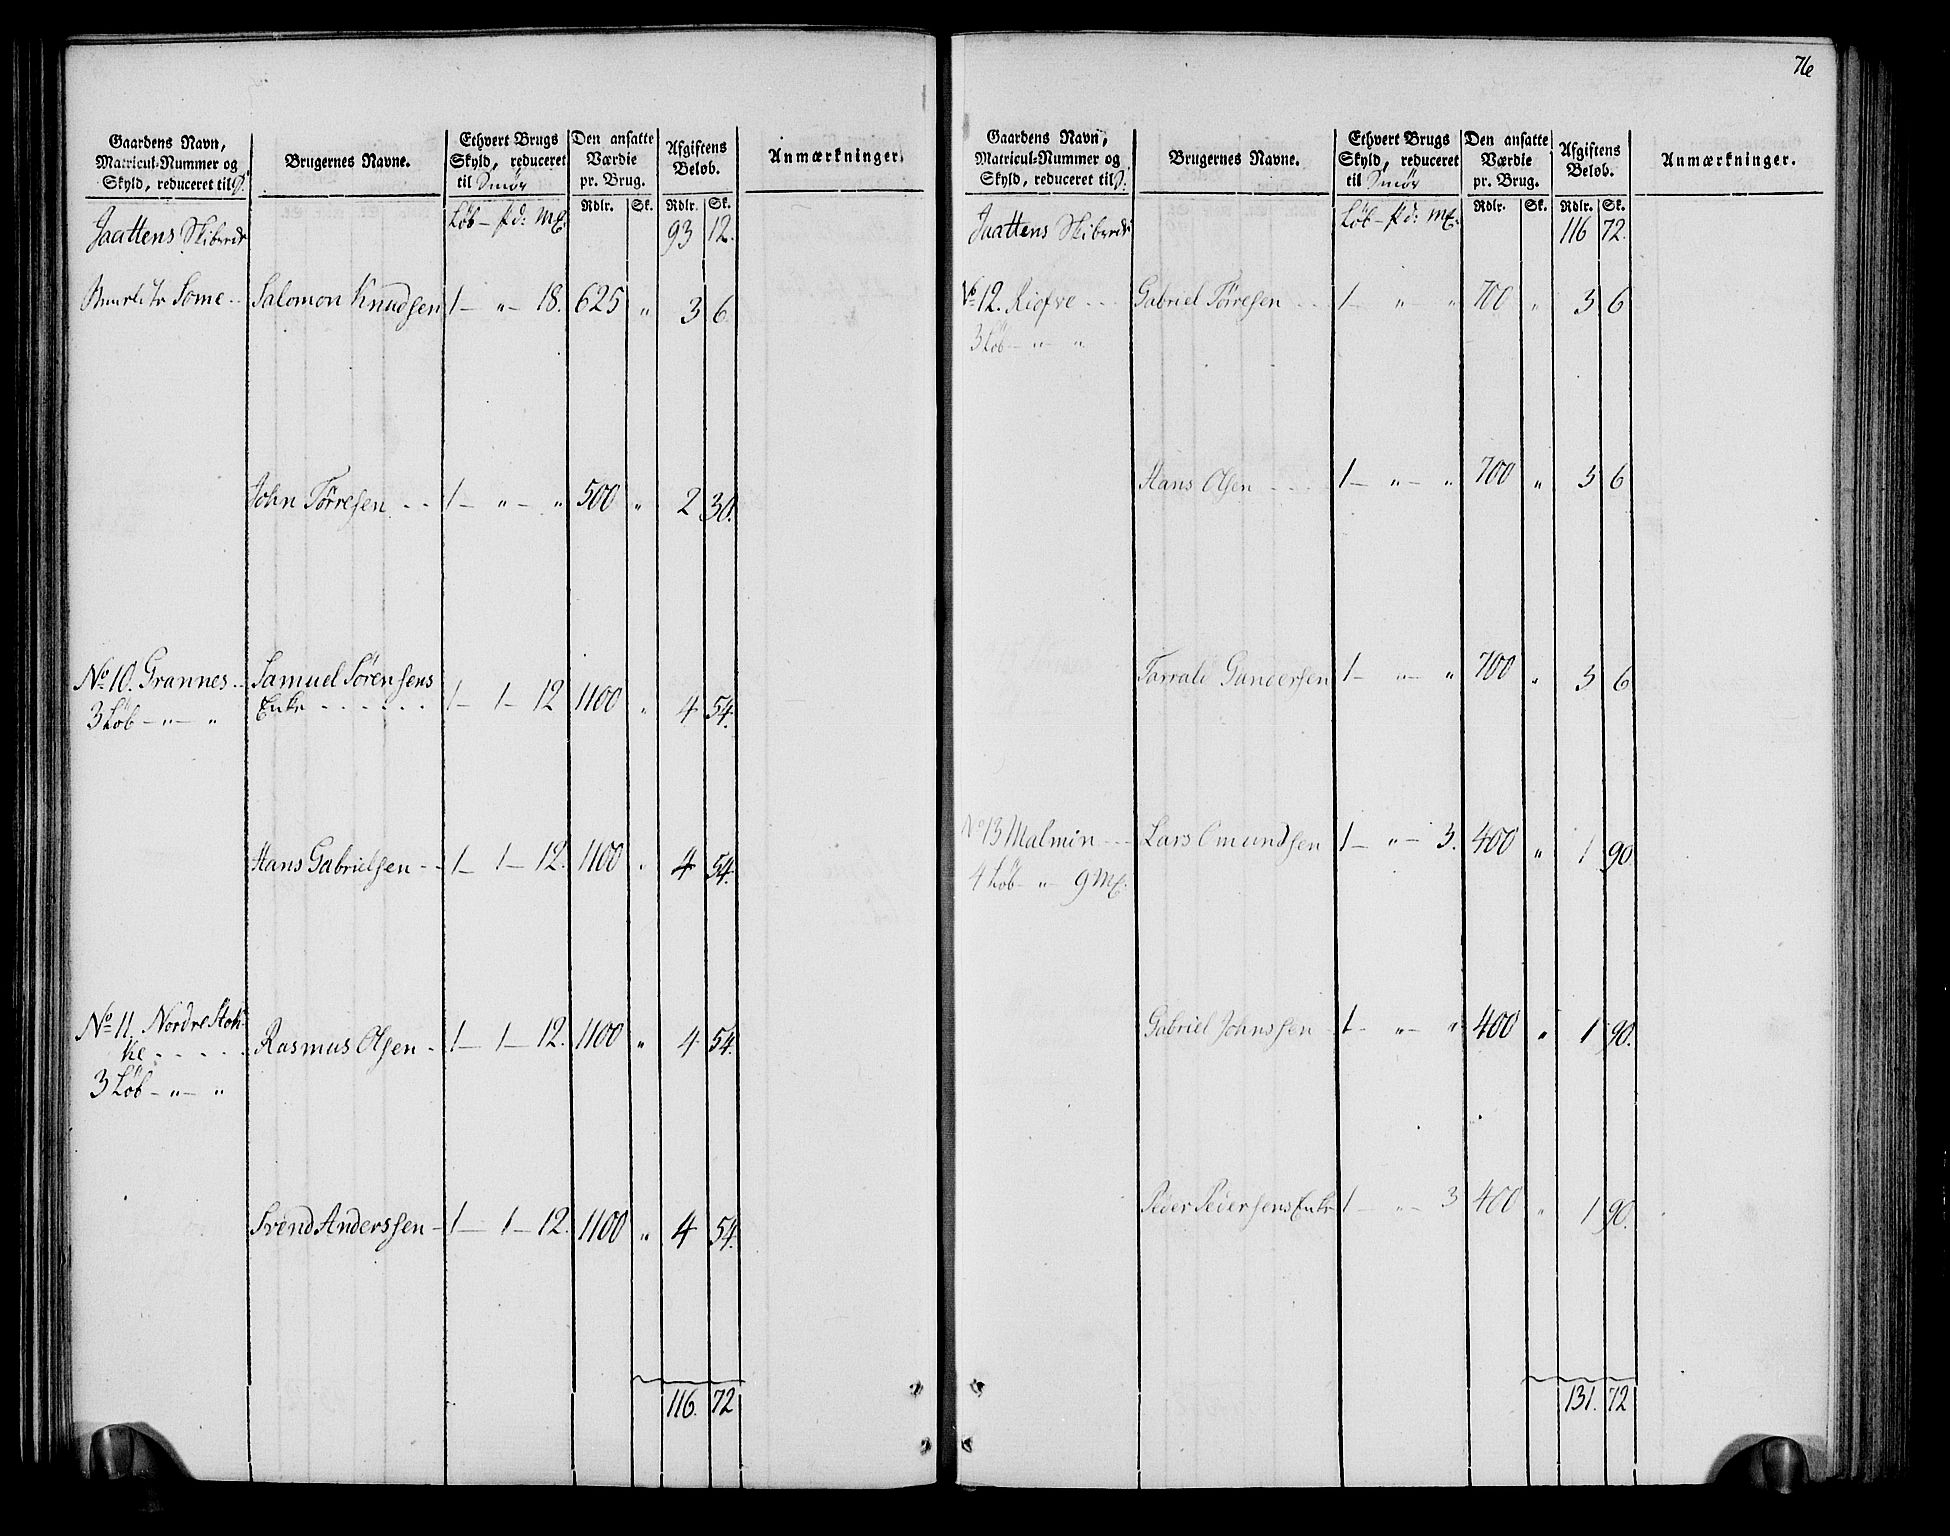 76
Gaardens Navn,
Matricul-Nummer og
Skyld, reduceret til
Brugernes Navne.
Ethvert Brugs
Skyld, reduceret
til Smör
Den ansatte
Værdie
pr. Brug.
Afgiftens
Beløb.
Anmærkninger.
Rdlr. Sk. Rdlr. Sk.
Löb - pd: mg:
Jaattens Skiberde 93 12.
Some - - Salomon Knudsen 1 - „ - 18. 625 „ 3 6
John Törresen - - 1 - „ - „ 500 „ 2 30.
No 10. Grannes - - Samuel Sörensens
3 Löb - „ - „ Enke - - - - - - 1 - 1 - 12 1100 „ 4 54.
Hans Gabrielsen - - 1 - 1 - 12. 1100 „ 4 54.
No 11. Nordre Stok-
ke - - - - - Rasmus Olsen - 1 - 1 - 12. 1100 „ 4 54.
3 Löb - „ - „
Svend Anderssen - 1 - 1 - 12. 1100 „ 4 54.
116. 72
Gaardens Navn,
Matricul-Nummer og
Skyld, reduceret til
Brugernes Navne.
Ethvert Brugs
Skyld, reduceret
til Smör
Den ansatte
Værdie
pr. Brug.
Afgiftens
Beløb.
Anmærkninger.
Rdlr. Sk. Rdlr. Sk.
Löb - pd: mg:
Jaattens Skiberde 116 72.
No 12. Riofve - - Gabriel Törresen - - 1 - „ - „ 700 „ 3 6
3 Löb - „ - „
Hans Olsen - - - 1 - „ - „ 700 „ 3 6
Torrald Gundersen 1 - „ - „ 700 „ 3 6
No 13 Malmin - - - Lars Omundsen 1 - „ - 3. 400 „ 1 90
4 Löb - „ - 9 mg.
Gabriel Johnssen 1 - „ - „ 400 „ 1 90.
Peder Pedersens Enke 1 - „ - 3 400 „ 1 90.
131. 72